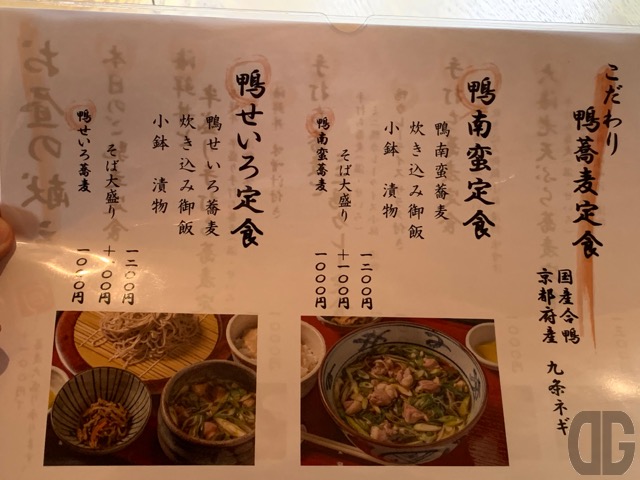 こだわり
鴨蕎麦定食
国産合鴨
京都府産 九条ネギ
鴨南蛮定食
鴨南蛮蕎麦
炊き込み御飯
小鉢 漬物
一二〇〇円
そば大盛り
+一〇〇円
鴨南蛮蕎麦
一〇〇〇円
鴨せいろ定食
鴨せいろ蕎麦
炊き込み御飯
小鉢 漬物
一二〇〇円
そば大盛り
+一〇〇円
鴨せいろ蕎麦
一〇〇〇円
DG